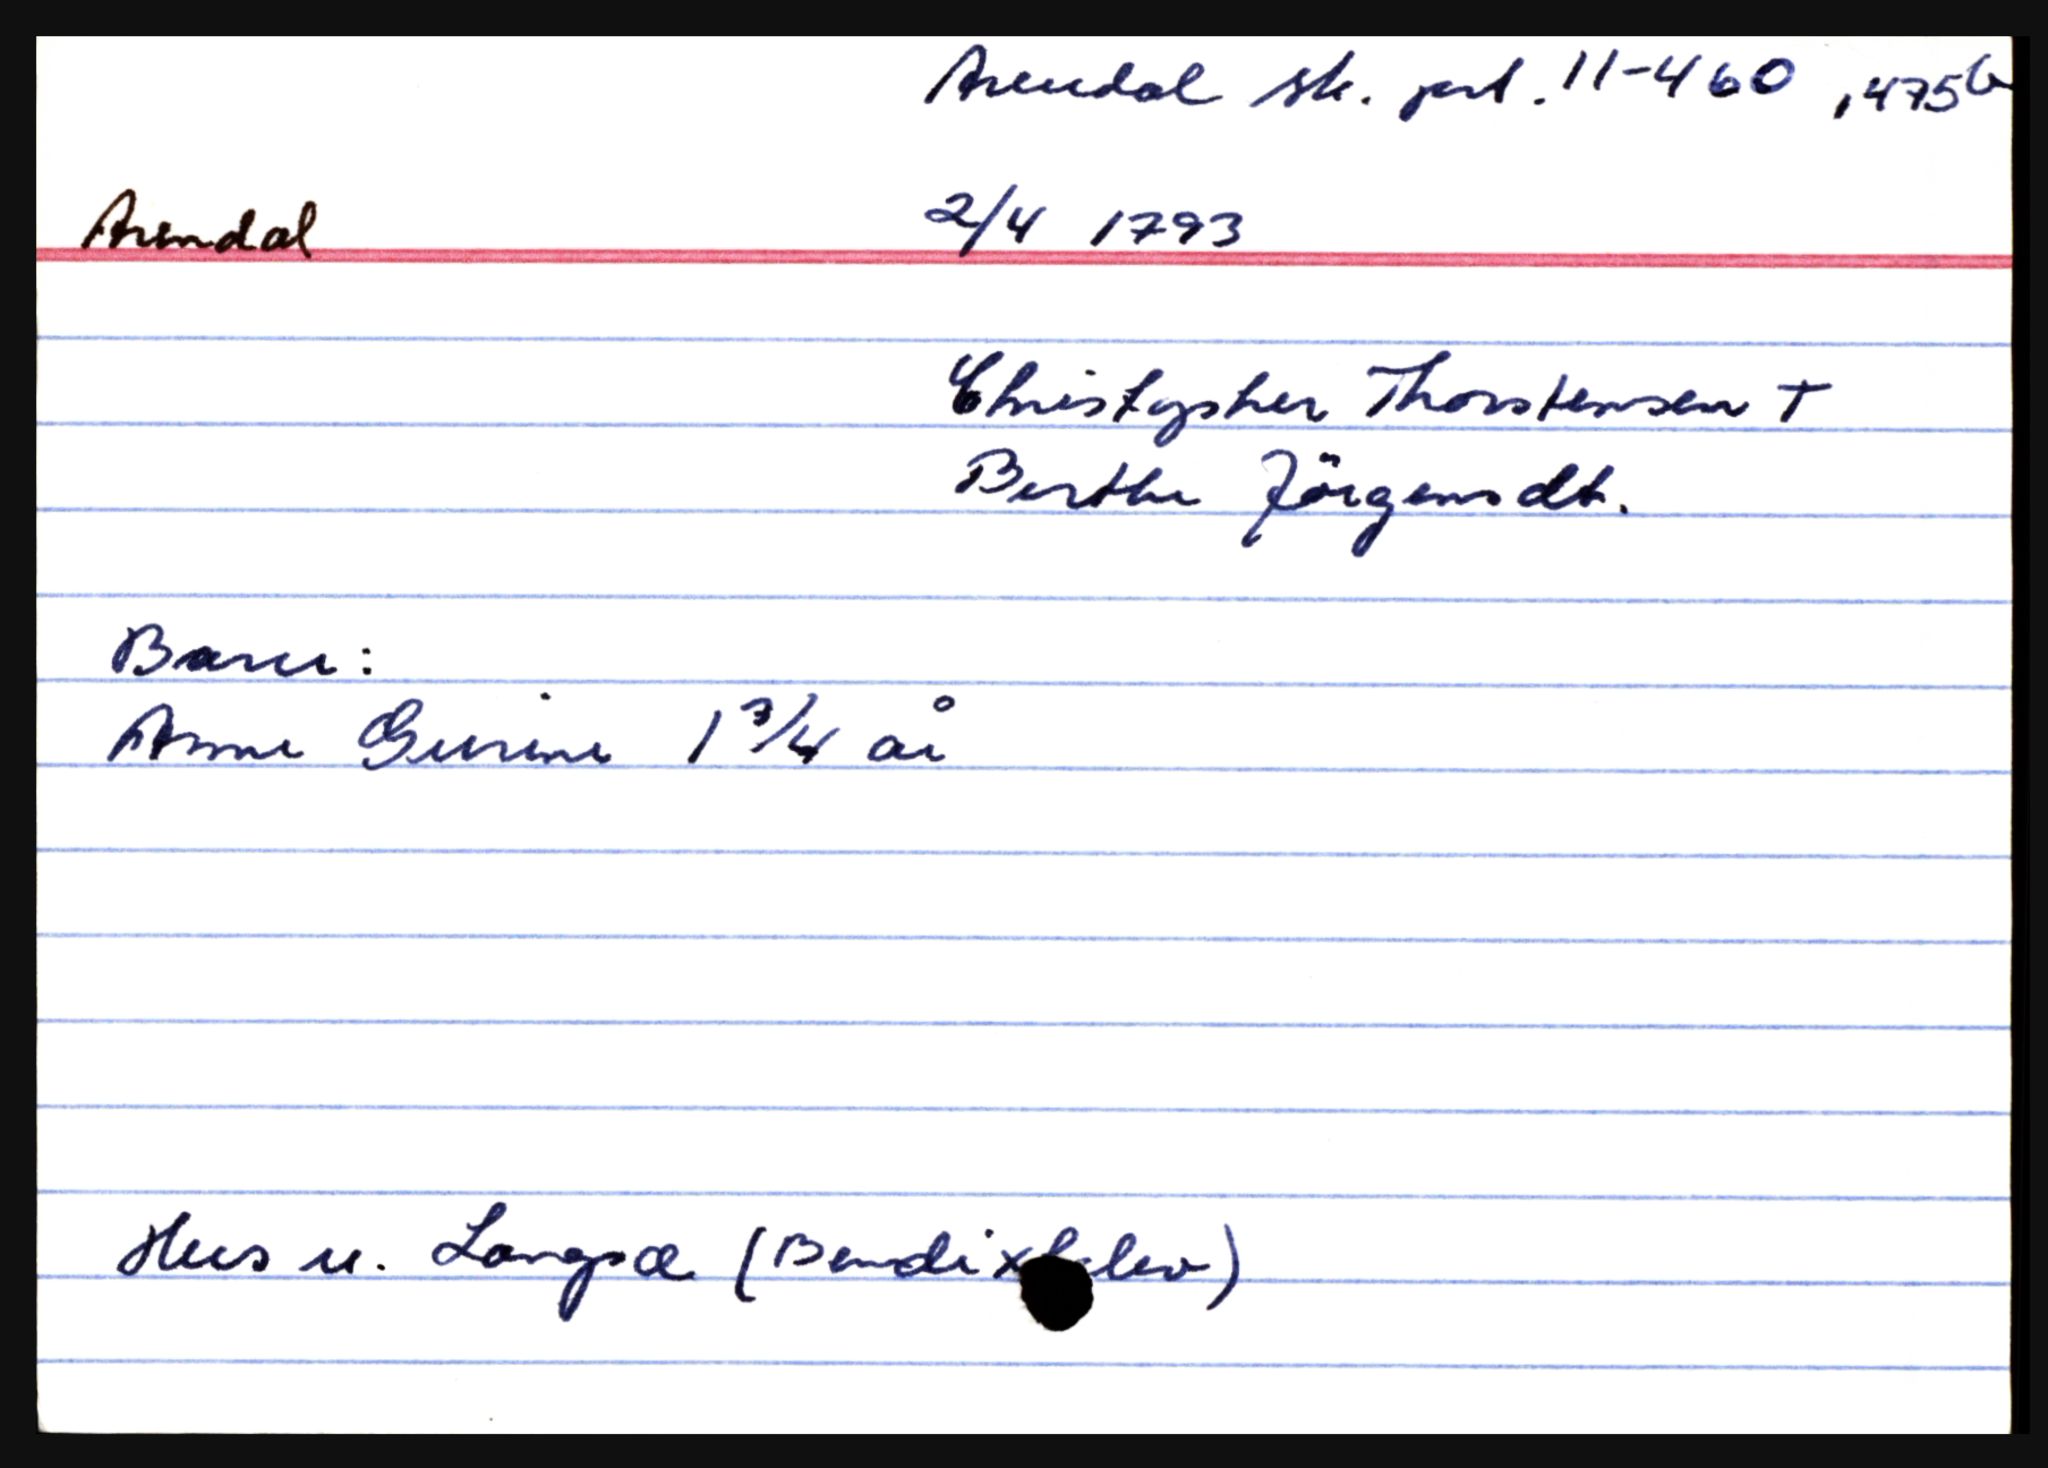 Arendal sk. prl. 11-460, 475b
Arendal 2/4 1793
Christopher Thorstensen †
Berthe Jörgensdt.
Barn:
Anne Gurine 1 3/4 år
Hus v. Langsæ (Bendiks